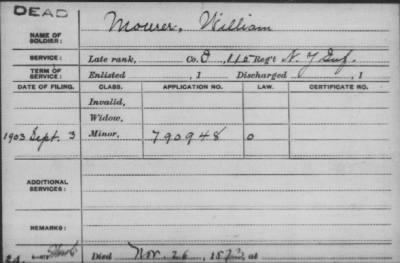 DEAD
NAME OF SOLDIER: Mourer, William
SERVICE: Late rank, Co. D, 112 Reg't N.Y. Inf.
TERM OF SERVICE: Enlisted , 1 Discharged , 1
DATE OF FILING. CLASS. APPLICATION NO. LAW. CERTIFICATE NO.
Invalid,
Widow,
1903 Sept. 3 Minor, 790948 0
ADDITIONAL SERVICES:
REMARKS:
Died Nov. 26, at